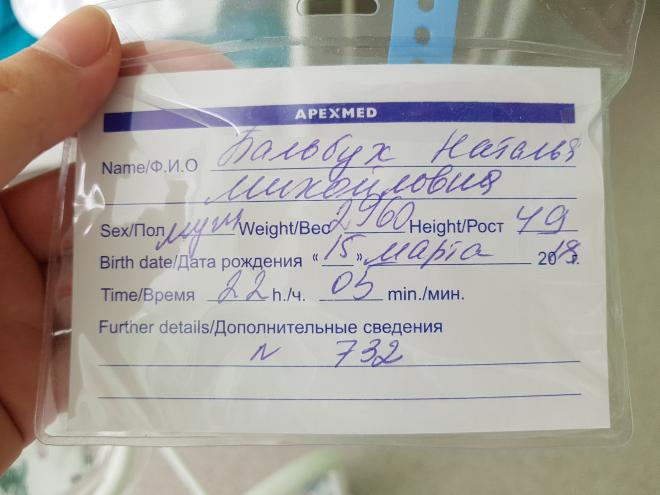 APEXMED
Name/Ф.И.О Бальбух Наталья
Михайловна
Sex/Пол муж Weight/Вес 2960 Height/Рост 49
Birth date/Дата рождения “ 15 ” марта 2018г.
Time/Время 22 h./ч. 05 min./мин.
Further details/Дополнительные сведения
N 732